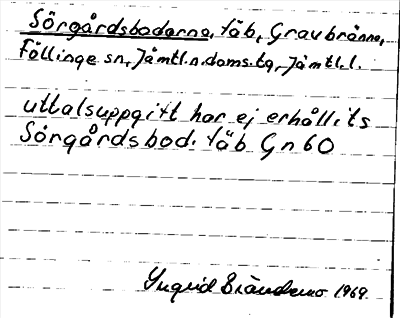 Sörgårdsbodarna, fäb, Gravbränna,
Föllinge sn, Jämtl.n.doms.tg, Jämtl.l.
uttalsuppgift har ej erhållits
Sörgårdsbod. fäb Gn 60
Yngvid Brändemo 1969